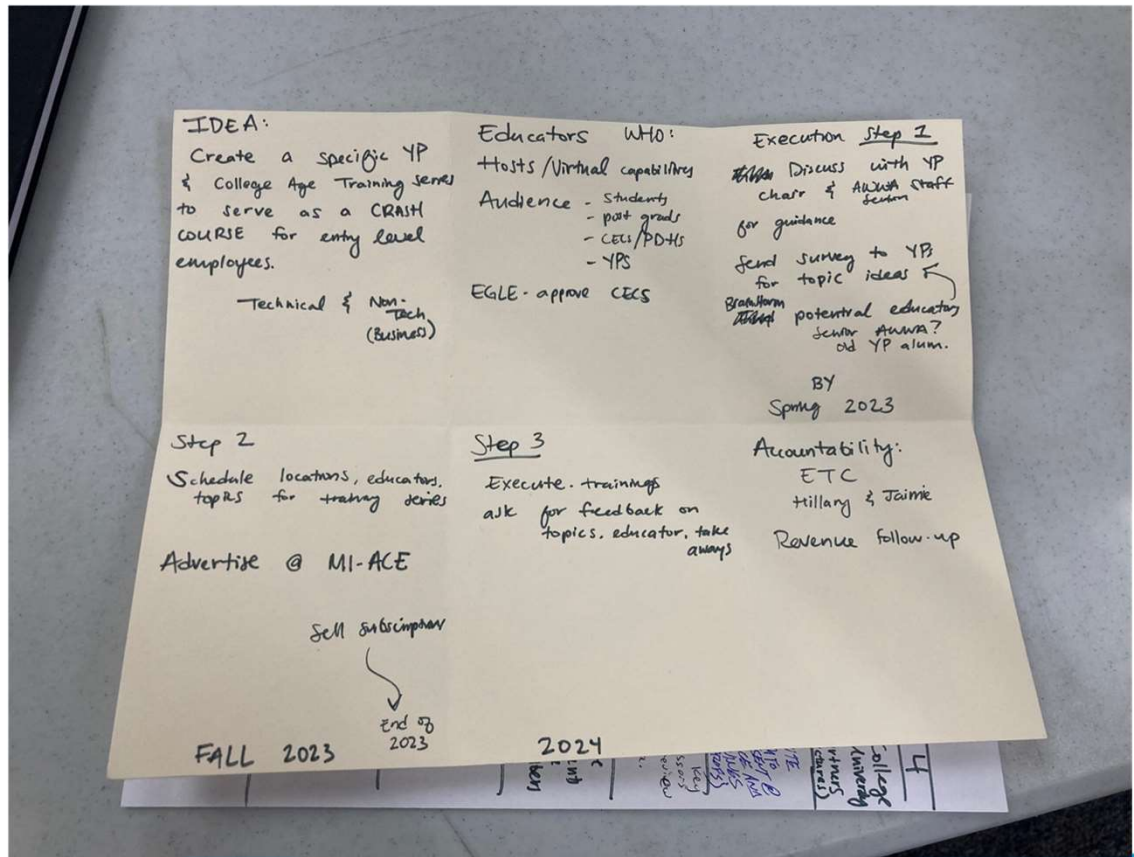 IDEA:
Create a specific YP
& College Age Training series
to serve as a CRASH
COURSE for entry level
employees.
Technical & Non-
Tech
(Business)
Educators WHO:
Hosts/Virtual capabilities
Audience - Students
- post grads
- CECs/PDHs
- YPS
EGLE - approve CECS
Execution Step 1
Discuss with YP
chair & AWWA Staff
Section
for guidance
Send survey to YPs
for topic ideas
Brainstorm
potential educators
Senior AWWA?
old YP alum.
BY
Spring 2023
Step 2
Schedule locations, educators,
topics for training series
Advertise @ MI-ACE
Sell subscription
End of
2023
FALL 2023
Step 3
Execute trainings
ask for feedback on
topics, educator, take
aways
2024
Accountability:
ETC
Hillary & Jaimie
Revenue follow-up
4
College